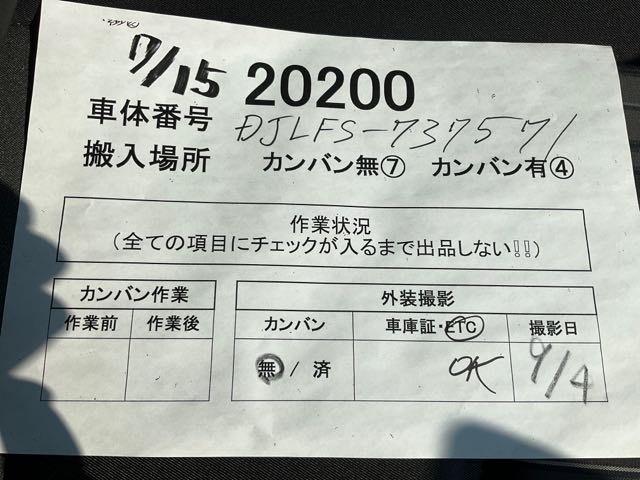 7/15 20200
車体番号 DJLFS-737571
搬入場所 カンバン無⑦ カンバン有④
作業状況
(全ての項目にチェックが入るまで出品しない!!)
カンバン作業 外装撮影
作業前 作業後 カンバン 車庫証・ETC 撮影日
無 / 済 OK 9/4